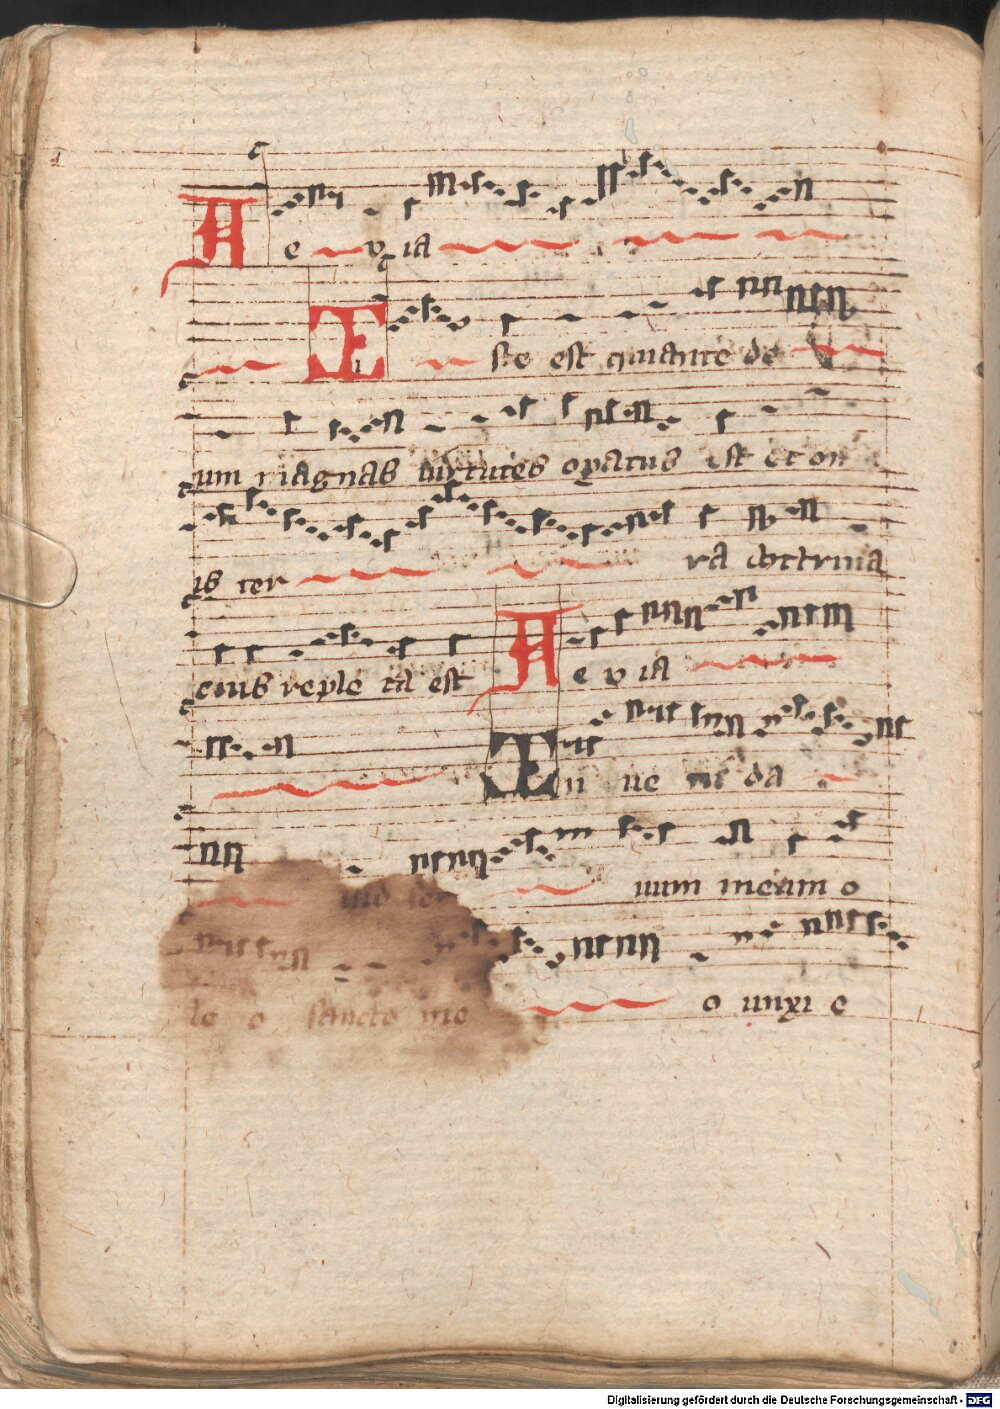 A e v ia
I ste est qui ante de
um magnas virtutes opatus est et om
is ter ra doctrina
eius reple ta est A e v ia
In ve ni da
vid se uum meum o
le o sancto me o unxi e
Digitalisierung gefördert durch die Deutsche Forschungsgemeinschaft - DFG